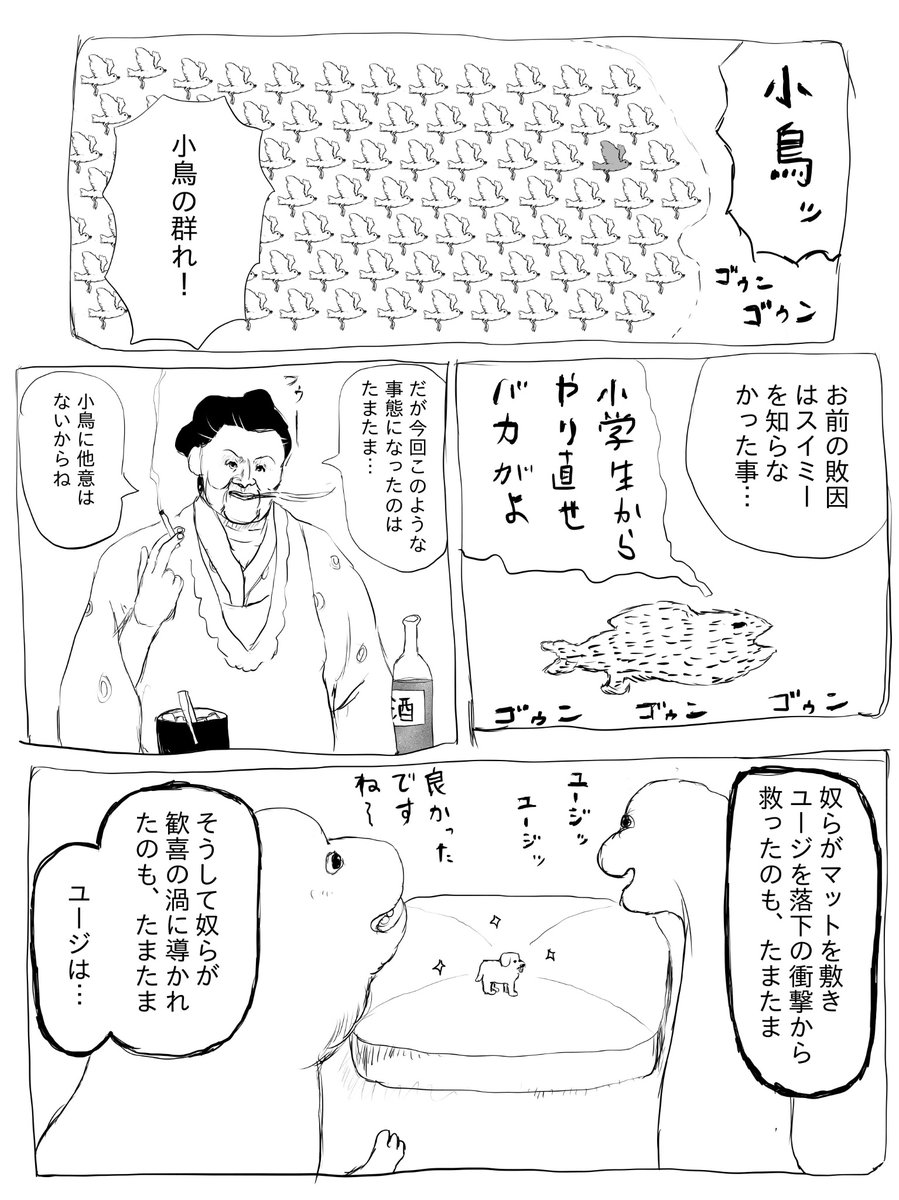 小鳥ッ
ゴゥン
ゴゥン
小鳥の群れ！
お前の敗因
はスイミー
を知らな
かった事…
小学生から
やり直せ
バカがよ
ゴゥン
ゴゥン
ゴゥン
だが今回このような
事態になったのは
たまたま…
フゥー
小鳥に他意は
ないからね
酒
奴らがマットを敷き
ユージを落下の衝撃から
救ったのも、たまたま
ユージッ
ユージッ
良かった
です
ね〜
そうして奴らが
歓喜の渦に導かれ
たのも、たまたま
ユージは…